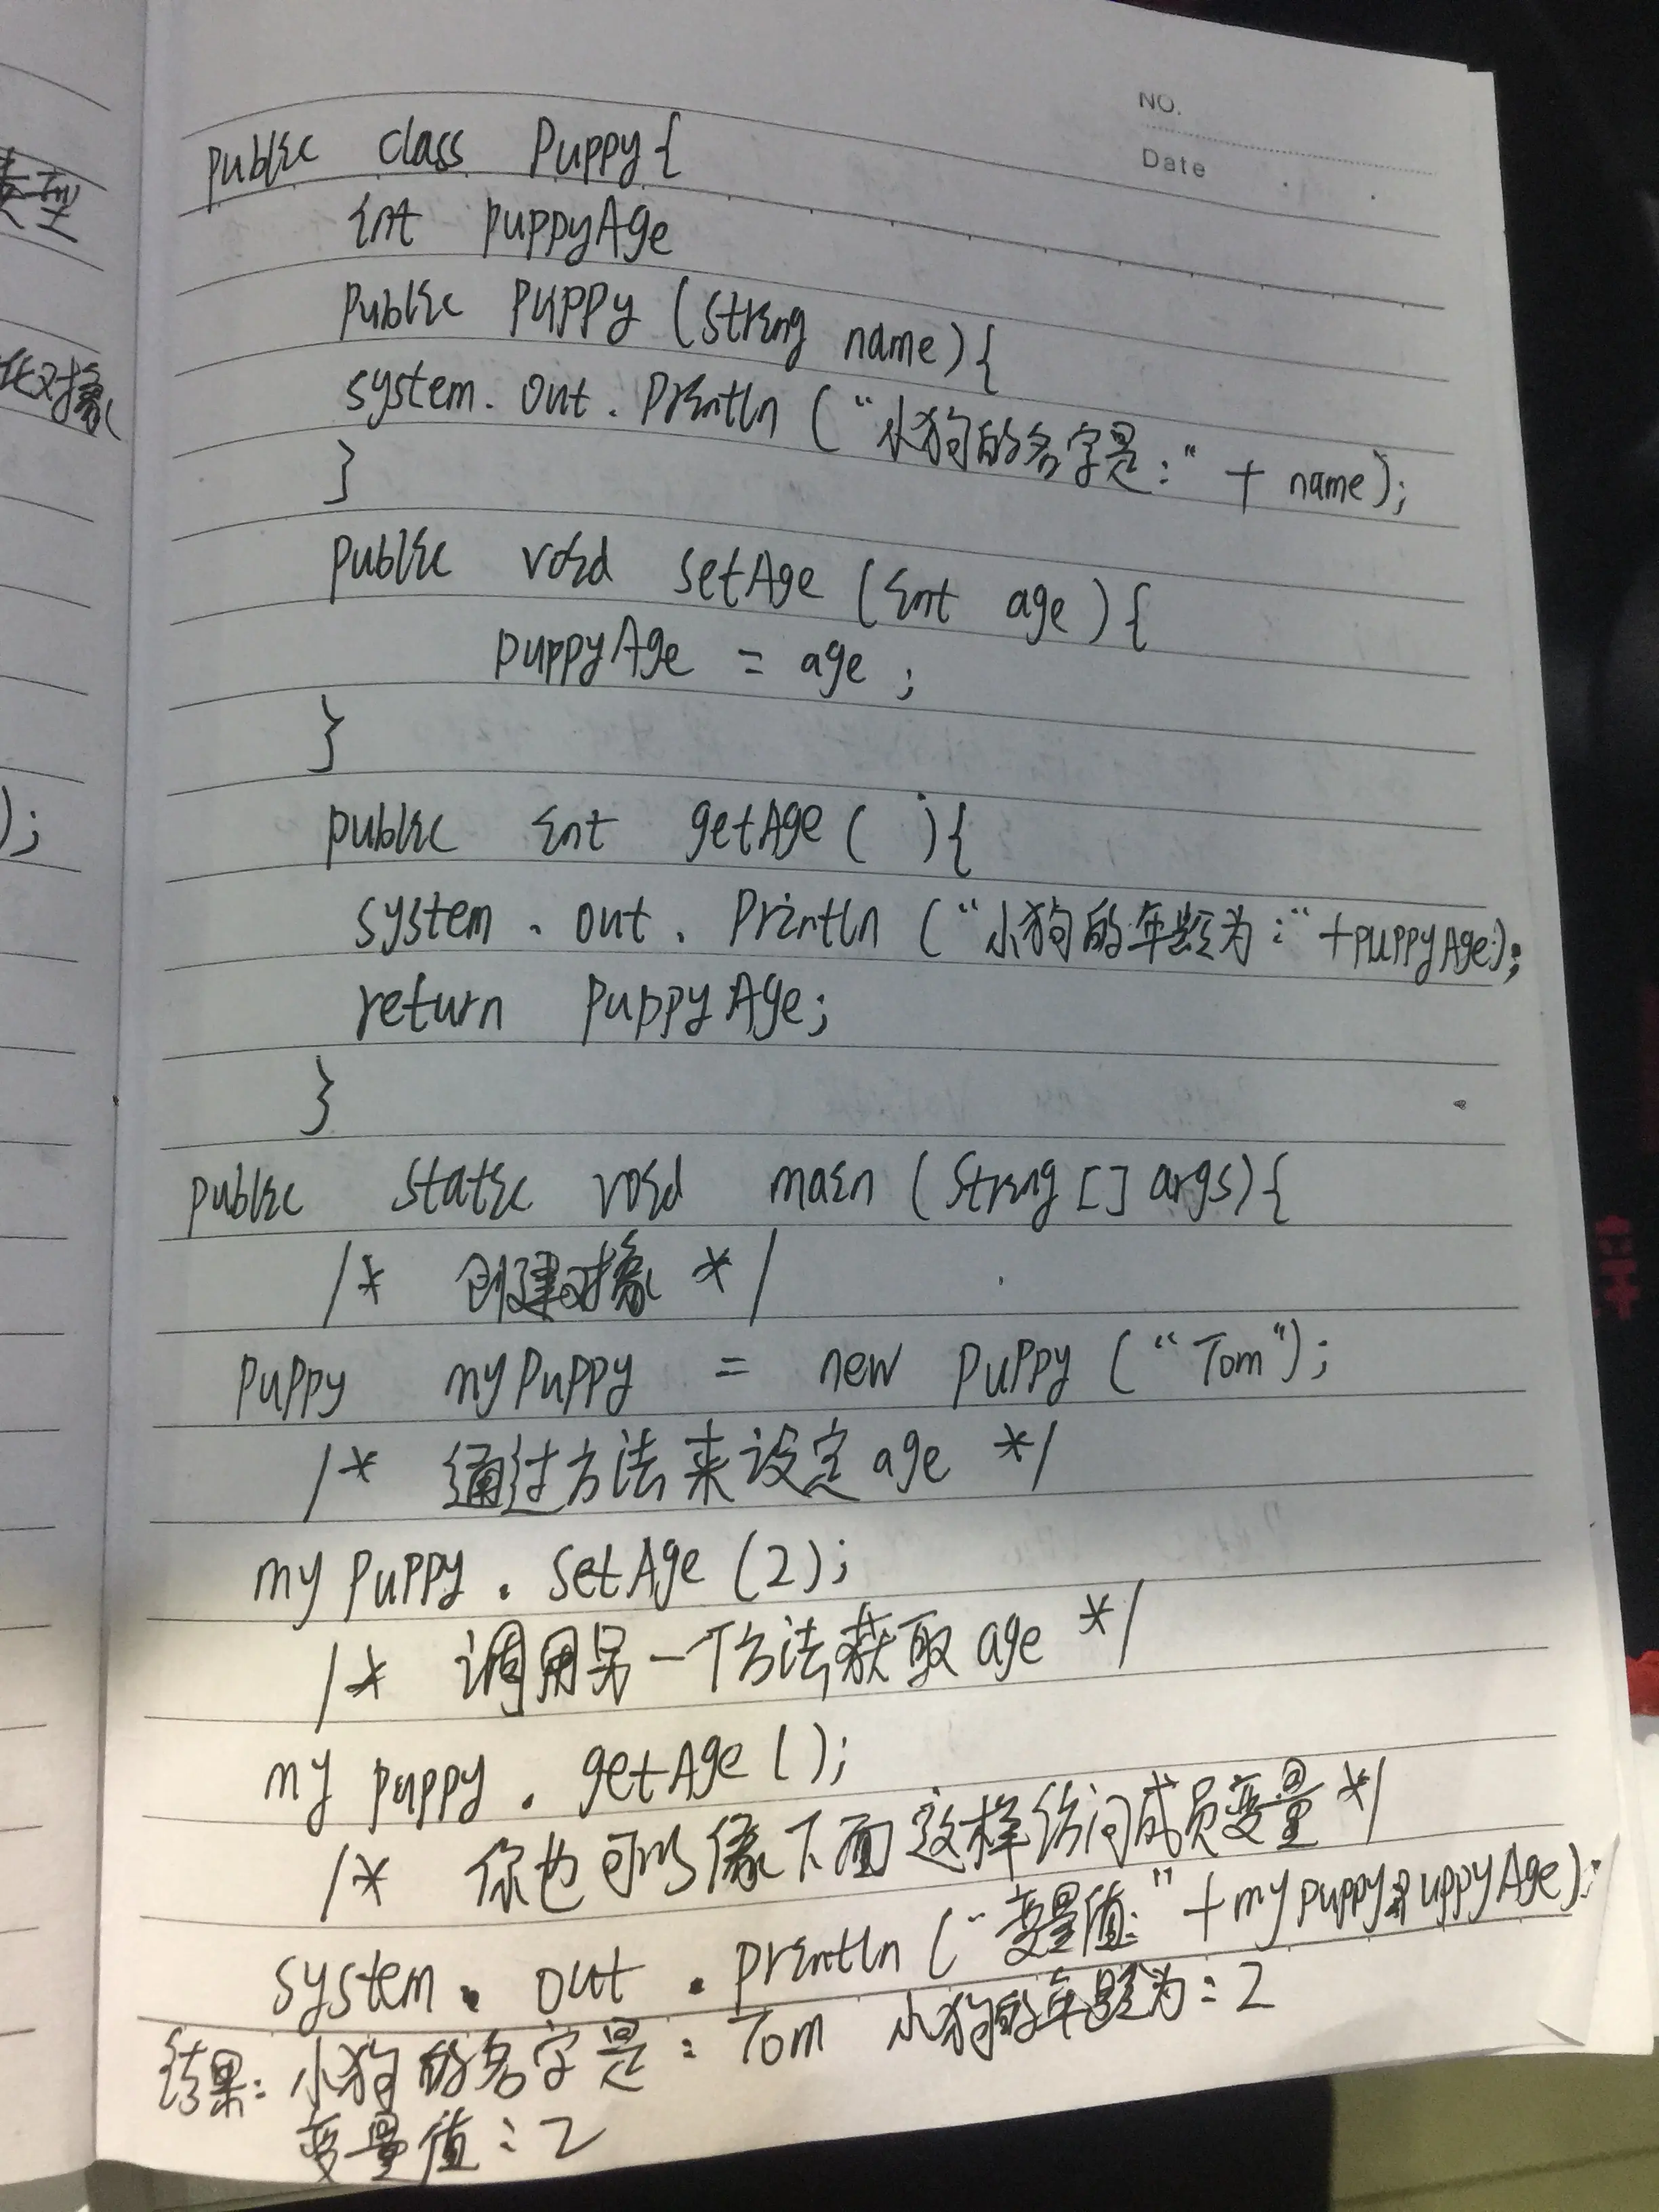 类型
化对象
);
NO.
Date
public class Puppy{
int puppyAge
public Puppy (String name){
system. out. Println ("小狗的名字是:" + name);
}
public void setAge (int age){
puppyAge = age ;
}
public int getAge ( ){
system . out . Println ("小狗的年龄为:"+puppyAge);
return puppyAge;
}
public static void main (String [] args){
/* 创建对象 */
Puppy myPuppy = new Puppy ("Tom");
/* 通过方法来设定age */
my puppy . setAge (2);
/* 调用另一个方法获取age */
my puppy . getAge ();
/* 你也可以像下面这样访问成员变量*/
system . out . println ("变量值:"+mypuppy.puppyAge);
结果: 小狗的名字是: Tom 小狗的年龄为:2
变量值:2